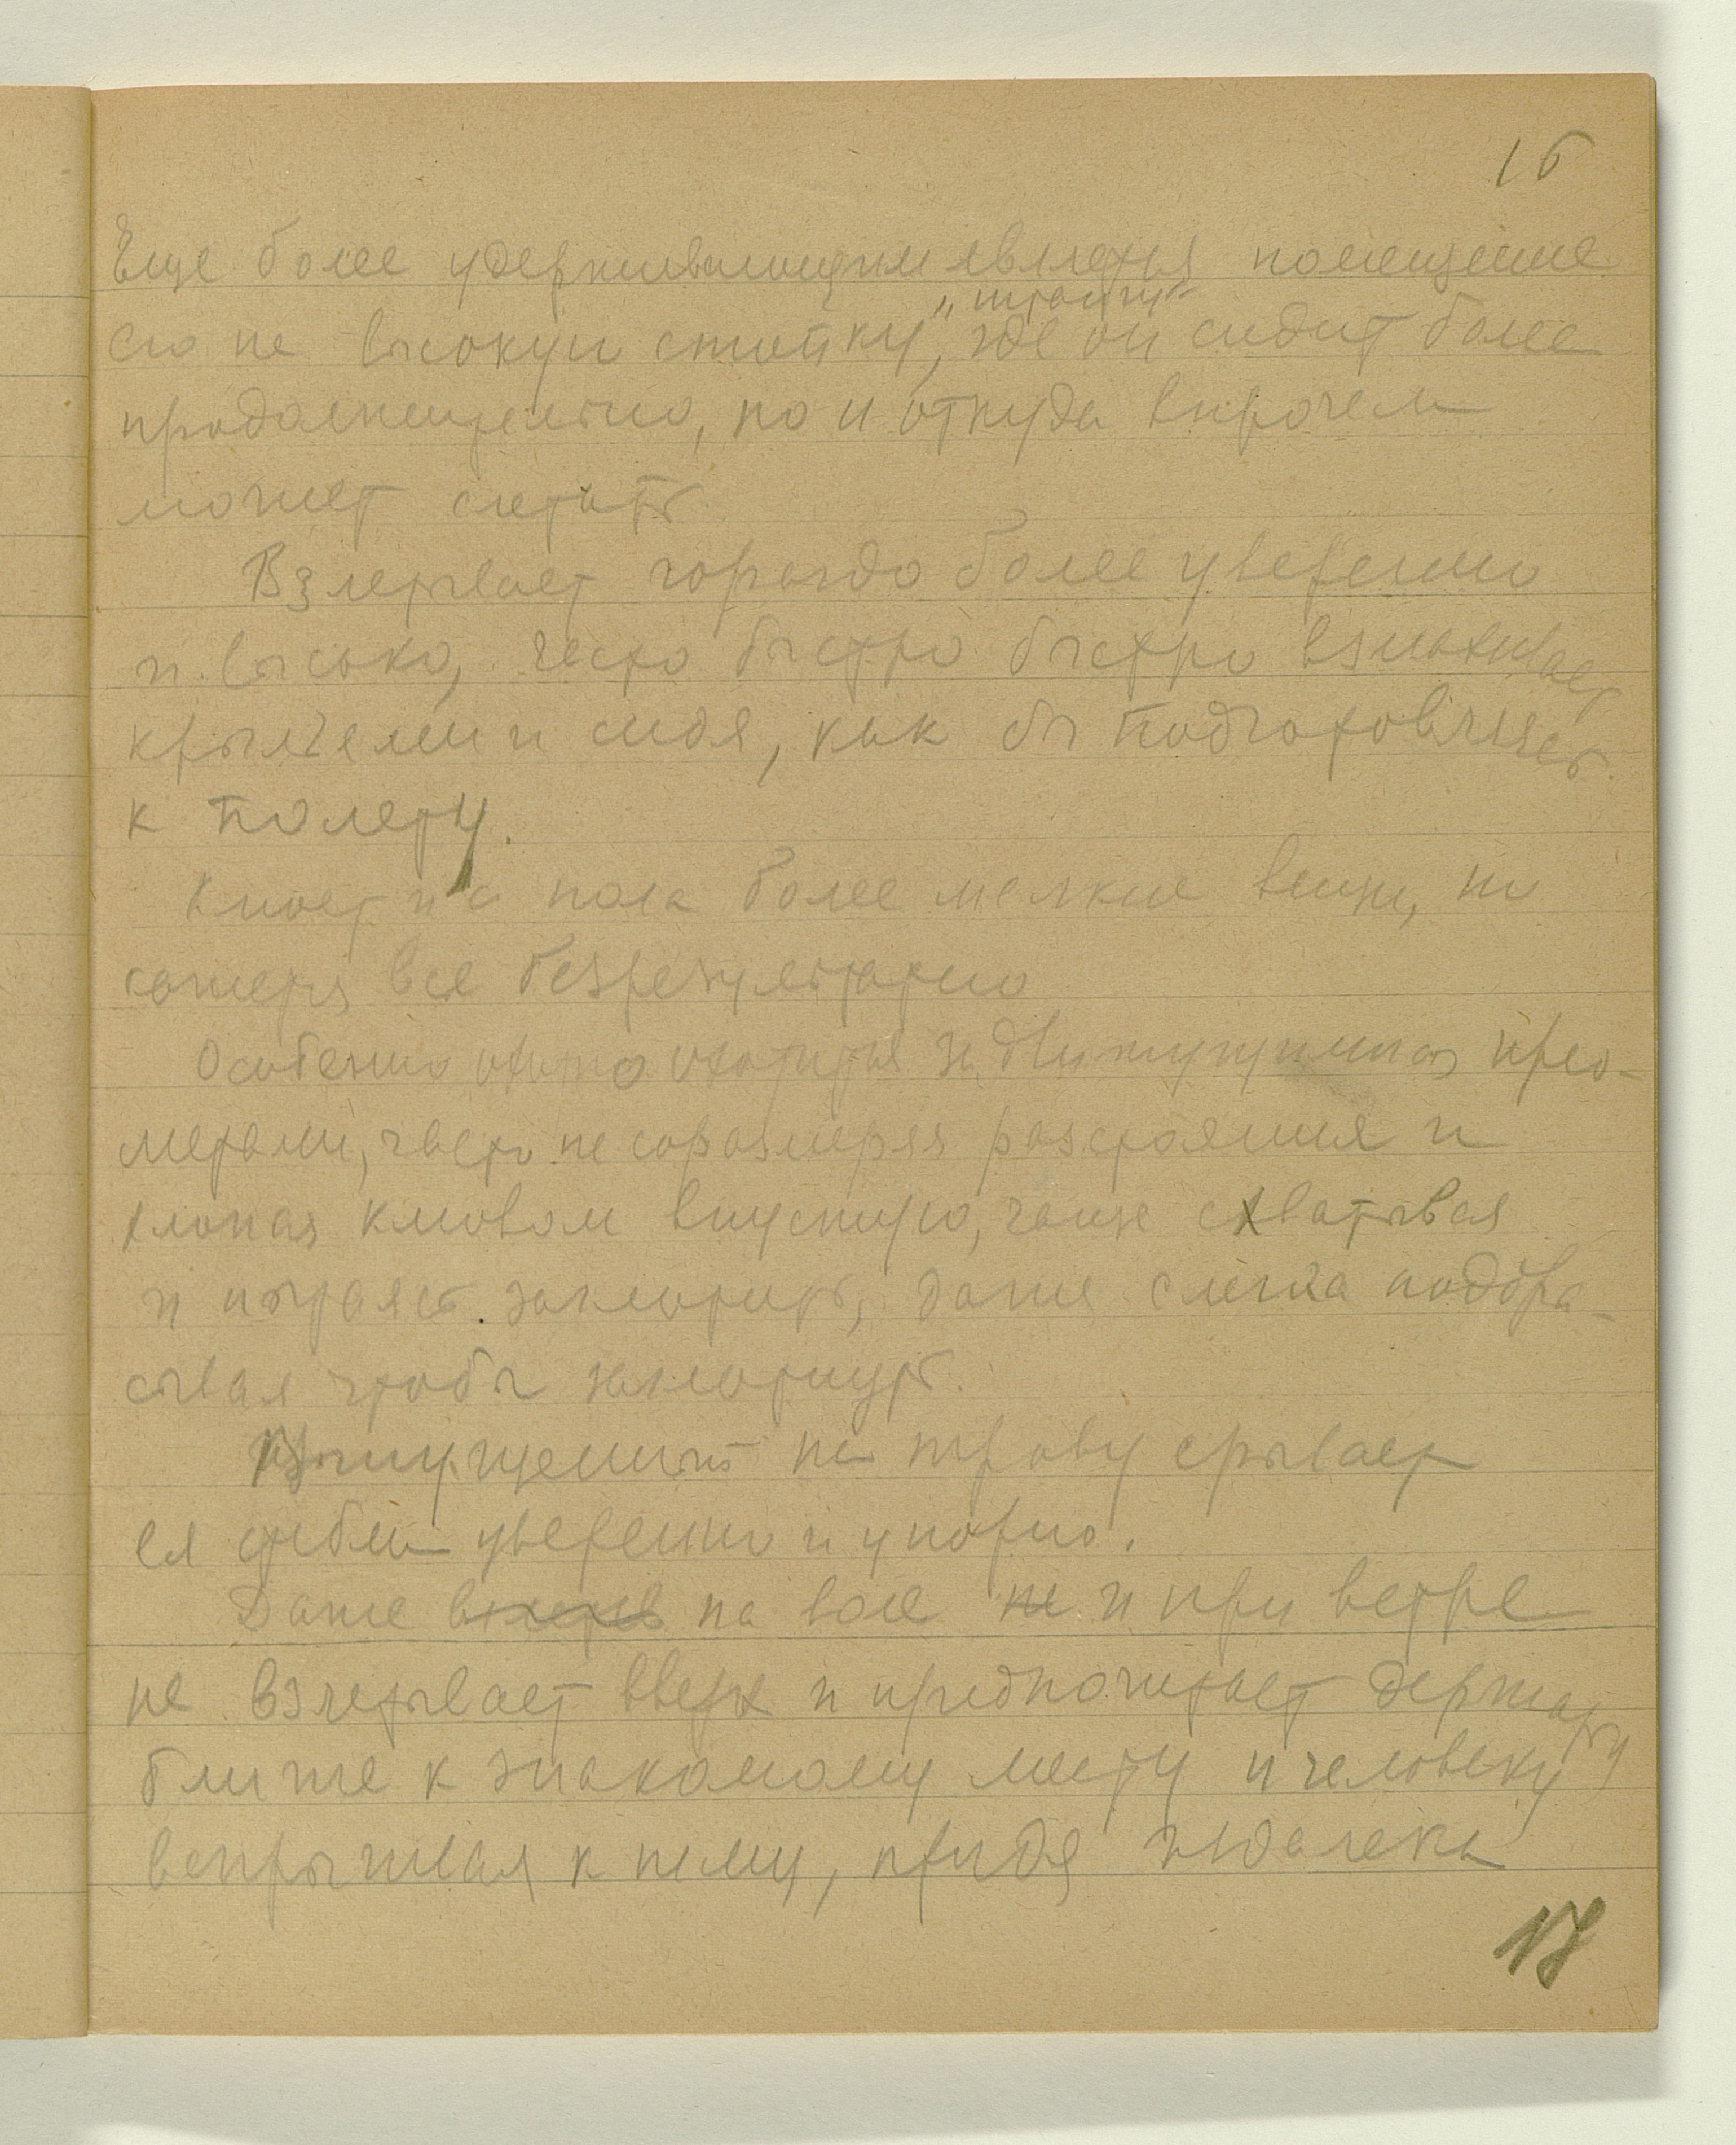 16
Еще более удерживающим является помещение
„штангу“
его на высокую стойку, где он сидит более
продолжительно, но и откуда впрочем
может слетать.
Взлетывает гораздо более уверенно
и высоко, часто быстро быстро взмахивает
крыльями и сидя, как бы подготовляясь
к полету.
Клюет и с пола более мелкие вещи, но
кажется все безрезультатно
Особенно охотно охотится за движущимися пред-
метами, часто не соразмеряя расстояния и
хлопая клювом впустую, чаще схватывая
и пытаясь заглотить, даже слегка подбра-
сывая чтобы заглотнуть.
Выпущенный на траву срывает
ея стебли уверенно и упорно.
Даже на воле не и при ветре
не взлетывает вверх и предпочитает держаться
ближе к знакомому месту и человеку
вспрыгивая к нему, придя издалека
17